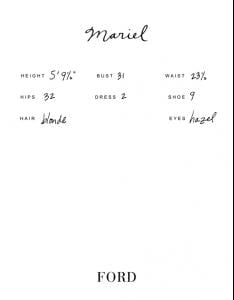 Mariel
HEIGHT 5' 9½" BUST 31 WAIST 23½
HIPS 32 DRESS 2 SHOE 9
HAIR blonde EYES hazel
FORD